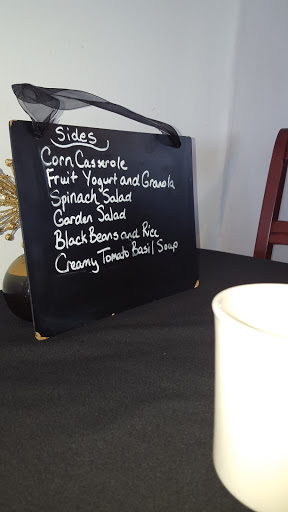 Sides
Corn Casserole
Fruit Yogurt and Granola
Spinach Salad
Garden Salad
Black Beans and Rice
Creamy Tomato Basil Soup